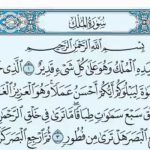 سُورَةُ المُلْكِ
بِسْمِ اللَّهِ الرَّحْمَٰنِ الرَّحِيمِ
يَدِهِ الْمُلْكُ وَهُوَ عَلَىٰ كُلِّ شَيْءٍ قَدِيرٌ ١ الَّذِي
لِيَبْلُوَكُمْ أَيُّكُمْ أَحْسَنُ عَمَلًا وَهُوَ الْعَزِيزُ
سَبْعَ سَمَٰوَٰتٍ طِبَاقًا مَّا تَرَىٰ فِي خَلْقِ
الْبَصَرَ هَلْ تَرَىٰ مِن فُطُورٍ ٣ ثُمَّ ارْجِعِ الْبَصَرَ